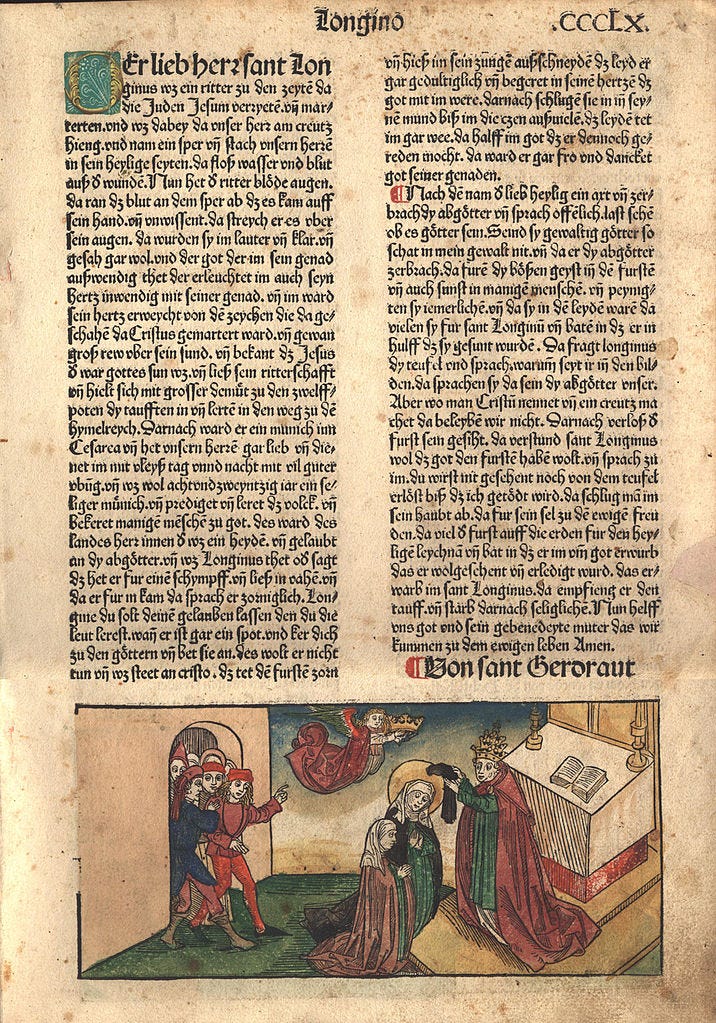 Longino
.CCCLX.
DEr lieb herr sant Lon
ginus wz ein ritter zu den zeytē da
die Juden Jesum verzyetē.vñ mar-
terten.vnd wz dabey da vnser herr am creütz
hieng.vnd nam ein sper vñ stach vnsern herrē
in sein heylige seyten.da floß wasser vnd blut
auß d wunden.Nun het d ritter blöde augen.
da ran dz blut an dem sper ab dz es kam auff
sein hand.vñ vnwissent.da streych er es vber
sein augen.da wurden sy im lauter vñ klar.vñ
gesah gar wol.vnd der got der im sein genad
außwendig thet der erleuchtet im auch seyn
hertz inwendig mit seiner genad.vñ im ward
sein hertz erweycht von dē zeychen die da ge-
schahē da Cristus gemartert ward.vñ gewan
groß rew vber sein sund.vñ bekant dz Jesus
d war gottes sun wz.vñ ließ sein ritterschafft
vñ hielt sich mit grosser demüt zu den zwelff-
poten dy taufften in vñ lertē in den weg zu dē
hymelreych.Darnach ward er ein münich im
Cesarea vñ het vnsern herrē gar lieb vñ die-
net im mit vleyß tag vnnd nacht mit vil guter
vbūg.vñ wz wol achtvndzweyntzig iar ein se-
liger münich.vñ prediget vñ leret dz volck.vñ
bekeret manige mēsche zu got.des ward des
landes herr innen d wz ein heydē.vñ gelaubt
an dy abgötter.vñ wz Longinus thet od sagt
dz het er fur einē schympff.vñ ließ in vahē.vñ
da er fur in kam da sprach er zorniglich.Lon-
gine du solt deinē gelauben lassen den du die
leut lerest.wañ er ist gar ein spot.vnd ker dich
zu den göttern vñ bet sie an.des wolt er nicht
tun vñ wz steet an cristo.dz tet dē fursten zorn
vñ hieß im sein zungē außschneydē dz leyd er
gar gedultiglich vñ begeret in seinē hertzē dz
got mit im were.darnach schlugē sie in in sey-
nē mund biß im die czen außvielē.dz leydē tet
im gar wee.da halff im got dz er dennoch ge-
reden mocht.da ward er gar fro vnd dancket
got seiner genaden.
Nach dē nam d lieb heylig ein axt vñ zer-
brach dy abgötter vñ sprach offēlich.last sehē
ob es götter sein.Seind sy gewaltig götter so
schat in mein gewalt nit.vñ da er dy abgötter
zerbrach.da furē dy bößen geyst in dē furstē
vñ auch sunst in manigē menschē.vñ peynig-
ten sy iemerlichē.vñ da sy in dē leydē warē da
vielen sy fur sant Longinū vñ batē in dz er in
hulff dz sy gesunt wurdē.Da fragt longinus
dy teufel vnd sprach.warum seyt ir in den bil-
den.da sprachen sy da sein dy abgötter vnser.
Aber wo man Cristū nennet vñ ein creutz ma
chet da beleybē wir nicht.Darnach verloß d
furst sein gesiht.da verstund sant Longinus
wol dz got den furstē habē wolt.vñ sprach zu
im.du wirst nit gesehent noch von dem teufel
erlöst biß dz ich getödt wird.da schlug mā im
sein haubt ab.da fur sein sel zu dē ewigē freu
den.da viel d furst auff die erden fur den hey-
ligē leychnā vñ bat in dz er im vm got erwurb
das er wolgesehent vñ erledigt wurd.das er-
warb im sant Longinus.da empfieng er den
tauff.vñ starb darnach seliglichē.Nun helff
vns got vnd sein gebenedeyte muter das wir
kummen zu dem ewigen leben Amen.
Von sant Gerdraut